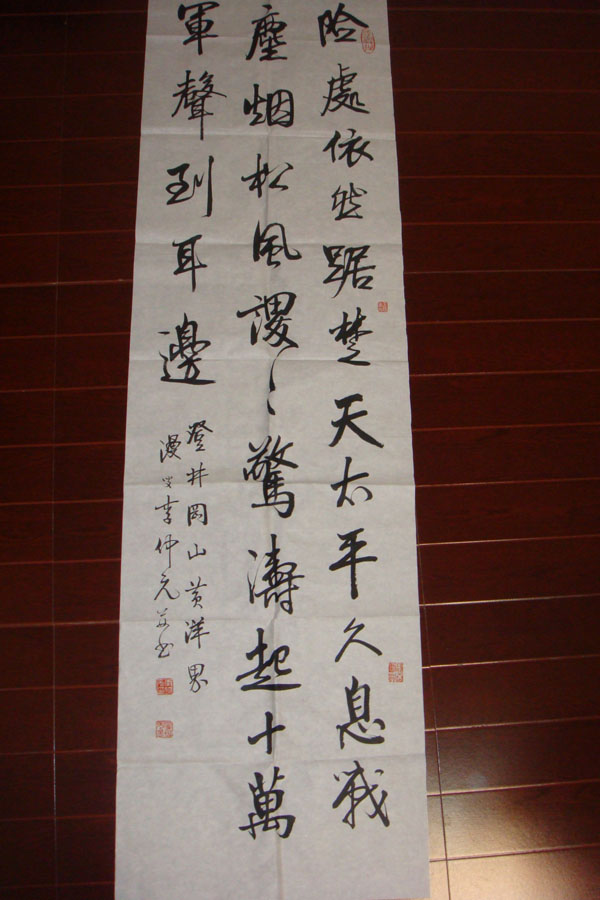 险處依然踞楚天太平久息戰
塵烟松風謖〻驚濤起十萬
軍聲到耳邊
登井岡山黄洋界
漫叟李仲元并书